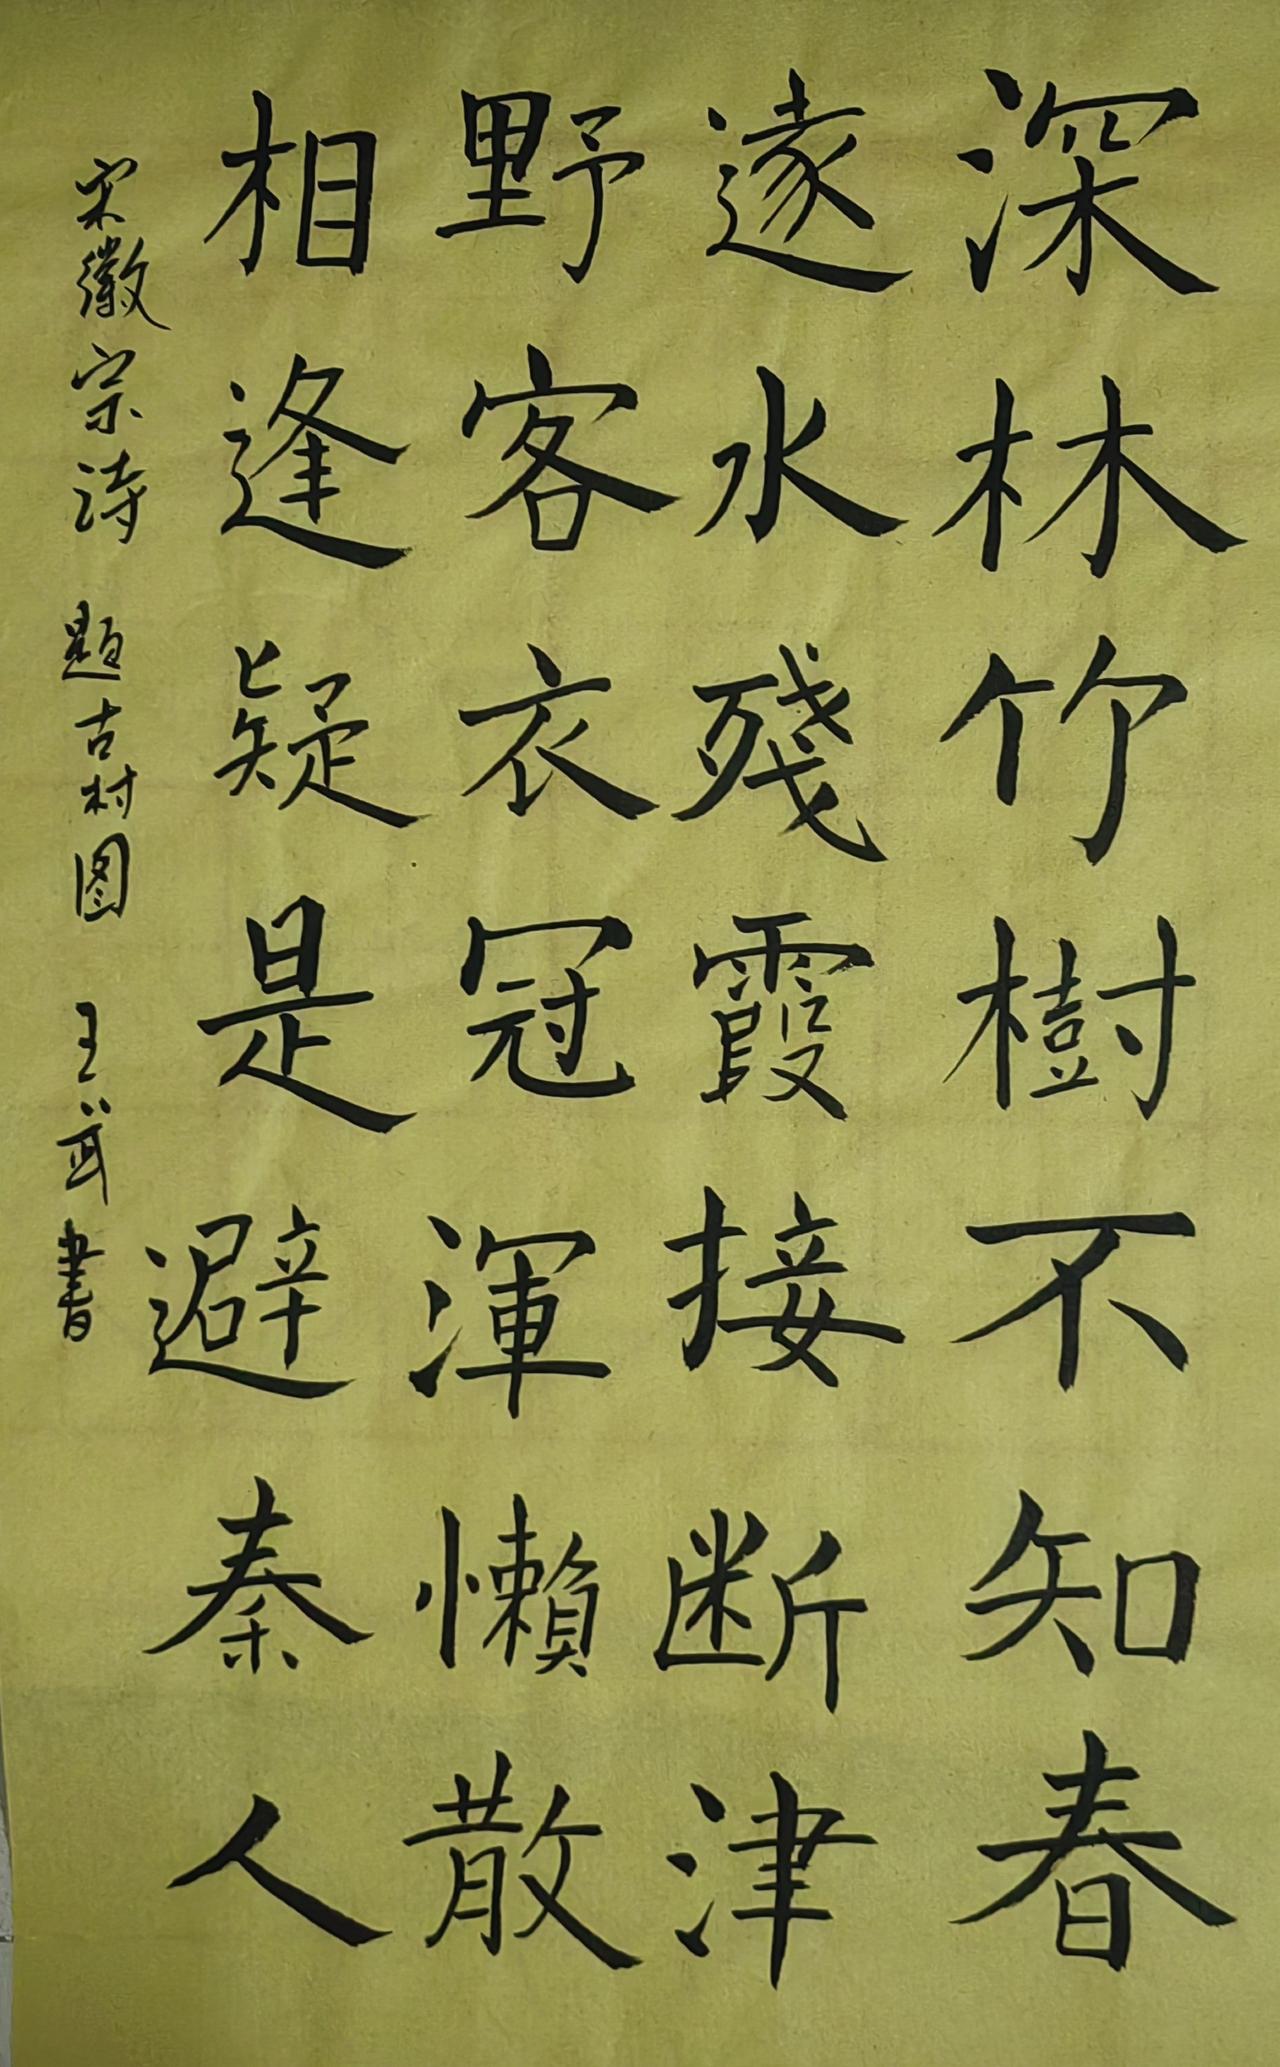 深林竹樹不知春
遂水殘霞接断津
野客衣冠渾懶散
相逢疑是避秦人
宋徽宗诗 题古村图 王武書